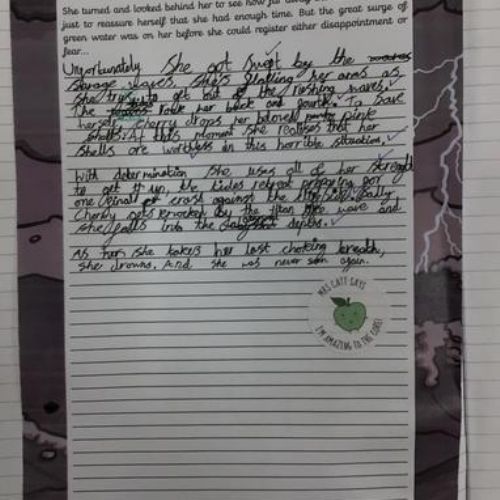 She turned and looked behind her to see how far away
just to reassure herself that she had enough time. But the great surge of
green water was on her before she could register either disappointment or
fear...
Unfortunately she got swept by the
savage waves. She's flalling her arms as
she trys to get out of the rushing waves.
The rock her back and fourth. To save
herself, cherry drops her beloved pink
shells. At this moment she realises that her
shells are worthless in this horrible situation.
With determination she uses all of her strength
to get up, the tides retreat preparing for
one final crash against the
Cherry gets knocked by the titan like wave and
she falls into the depths.
As she takes her last choking breath,
she drowns. And she was never seen again.
MRS CATT SAYS
I'M AMAZING TO THE CORE!